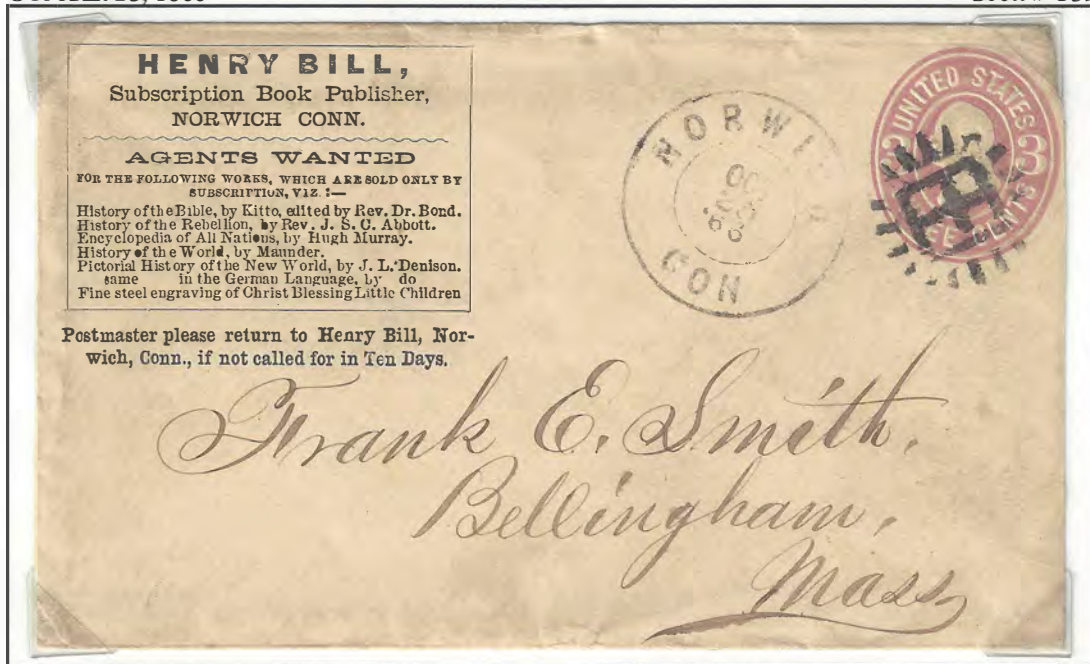 HENRY BILL,
Subscription Book Publisher,
NORWICH CONN.
AGENTS WANTED
FOR THE FOLLOWING WORKS, WHICH ARE SOLD ONLY BY
SUBSCRIPTION, VIZ.:—
History of the Bible, by Kitto, edited by Rev. Dr. Bond.
History of the Rebellion, by Rev. J. S. C. Abbott.
Encyclopedia of All Nations, by Hugh Murray.
History of the World, by Maunder.
Pictorial History of the New World, by J. L. Denison.
same in the German Language, by do
Fine steel engraving of Christ Blessing Little Children
Postmaster please return to Henry Bill, Nor-
wich, Conn., if not called for in Ten Days.
NORWICH
CON
UNITED STATES
3
CENTS
Frank E. Smith.
Bellingham,
Mass